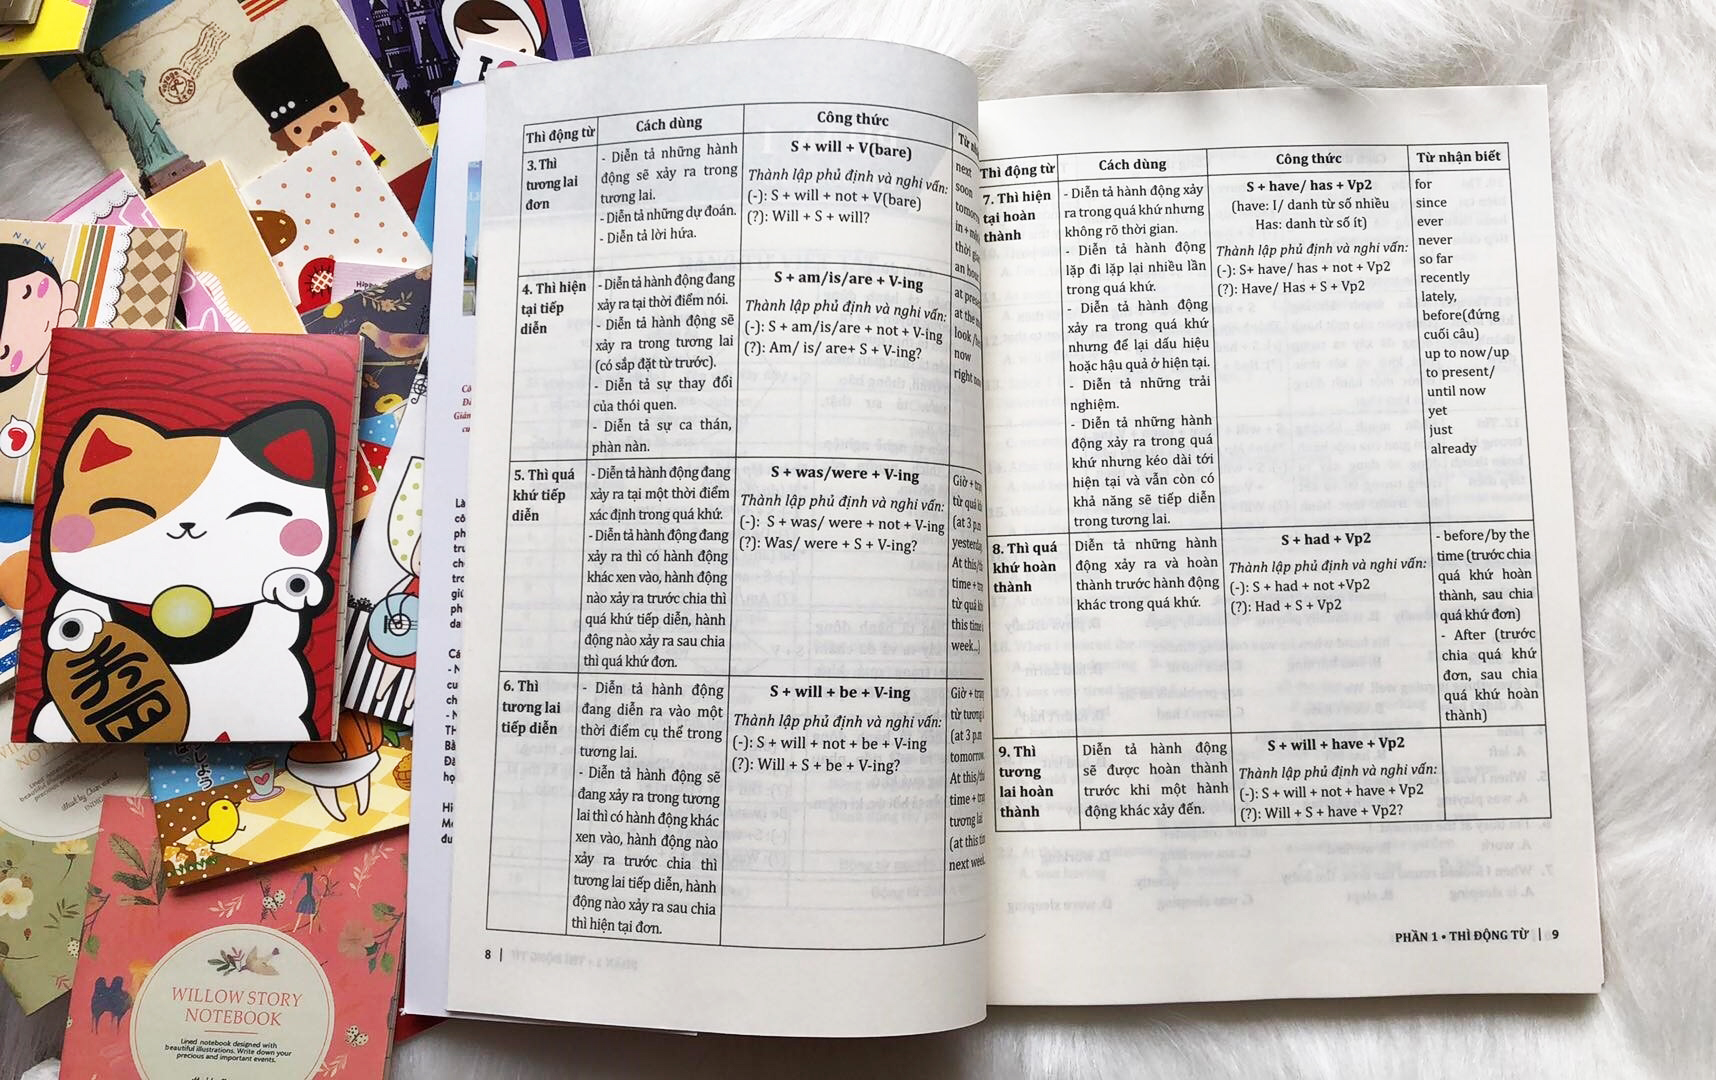 Thì động từ
Cách dùng
Công thức
3. Thì
tương lai
đơn
- Diễn tả những hành
động sẽ xảy ra trong
tương lai.
- Diễn tả những dự đoán.
- Diễn tả lời hứa.
S + will + V(bare)
Thành lập phủ định và nghi vấn:
(-): S + will + not + V(bare)
(?): Will + S + will?
next
soon
4. Thì hiện
tại tiếp
diễn
- Diễn tả hành động đang
xảy ra tại thời điểm nói.
- Diễn tả hành động sẽ
xảy ra trong tương lai
(có sắp đặt từ trước).
- Diễn tả sự thay đổi
của thói quen.
- Diễn tả sự ca thán,
phàn nàn.
S + am/is/are + V-ing
Thành lập phủ định và nghi vấn:
(-): S + am/is/are + not + V-ing
(?): Am/ is/ are+ S + V-ing?
now
5. Thì quá
khứ tiếp
diễn
- Diễn tả hành động đang
xảy ra tại một thời điểm
xác định trong quá khứ.
- Diễn tả hành động đang
xảy ra thì có hành động
khác xen vào, hành động
nào xảy ra trước chia thì
quá khứ tiếp diễn, hành
động nào xảy ra sau chia
thì quá khứ đơn.
S + was/were + V-ing
Thành lập phủ định và nghi vấn:
(-): S + was/ were + not + V-ing
(?): Was/ were + S + V-ing?
Giờ +
từ quá
(at 3
At this/
time +
từ quá
this time
week...)
6. Thì
tương lai
tiếp diễn
- Diễn tả hành động
đang diễn ra vào một
thời điểm cụ thể trong
tương lai.
- Diễn tả hành động sẽ
đang xảy ra trong tương
lai thì có hành động khác
xen vào, hành động nào
xảy ra trước chia thì
tương lai tiếp diễn, hành
động nào xảy ra sau chia
thì hiện tại đơn.
S + will + be + V-ing
Thành lập phủ định và nghi vấn:
(-): S + will + not + be + V-ing
(?): Will + S + be + V-ing?
Giờ +
từ tương
(at 3
At this/
time +
tương lai
(at this
next week
8 |
Thì động từ
Cách dùng
Công thức
Từ nhận biết
7. Thì hiện
tại hoàn
thành
- Diễn tả hành động xảy
ra trong quá khứ nhưng
không rõ thời gian.
- Diễn tả hành động
lặp đi lặp lại nhiều lần
trong quá khứ.
- Diễn tả hành động
xảy ra trong quá khứ
nhưng để lại dấu hiệu
hoặc hậu quả ở hiện tại.
- Diễn tả những trải
nghiệm.
- Diễn tả những hành
động xảy ra trong quá
khứ nhưng kéo dài tới
hiện tại và vẫn còn có
khả năng sẽ tiếp diễn
trong tương lai.
S + have/ has + Vp2
(have: I/ danh từ số nhiều
Has: danh từ số ít)
Thành lập phủ định và nghi vấn:
(-): S+ have/ has + not + Vp2
(?): Have/ Has + S + Vp2
for
since
ever
never
so far
recently
lately,
before(đứng
cuối câu)
up to now/up
to present/
until now
yet
just
already
8. Thì quá
khứ hoàn
thành
Diễn tả những hành
động xảy ra và hoàn
thành trước hành động
khác trong quá khứ.
S + had + Vp2
Thành lập phủ định và nghi vấn:
(-): S + had + not +Vp2
(?): Had + S + Vp2
- before/by the
time (trước chia
quá khứ hoàn
thành, sau chia
quá khứ đơn)
- After (trước
chia quá khứ
đơn, sau chia
quá khứ hoàn
thành)
9. Thì
tương
lai hoàn
thành
Diễn tả hành động
sẽ được hoàn thành
trước khi một hành
động khác xảy đến.
S + will + have + Vp2
Thành lập phủ định và nghi vấn:
(-): S + will + not + have + Vp2
(?): Will + S + have + Vp2?
PHẦN 1 • THÌ ĐỘNG TỪ | 9
WILLOW STORY
NOTEBOOK
Lined notebook designed with
beautiful illustrations. Write down your
precious and important events.